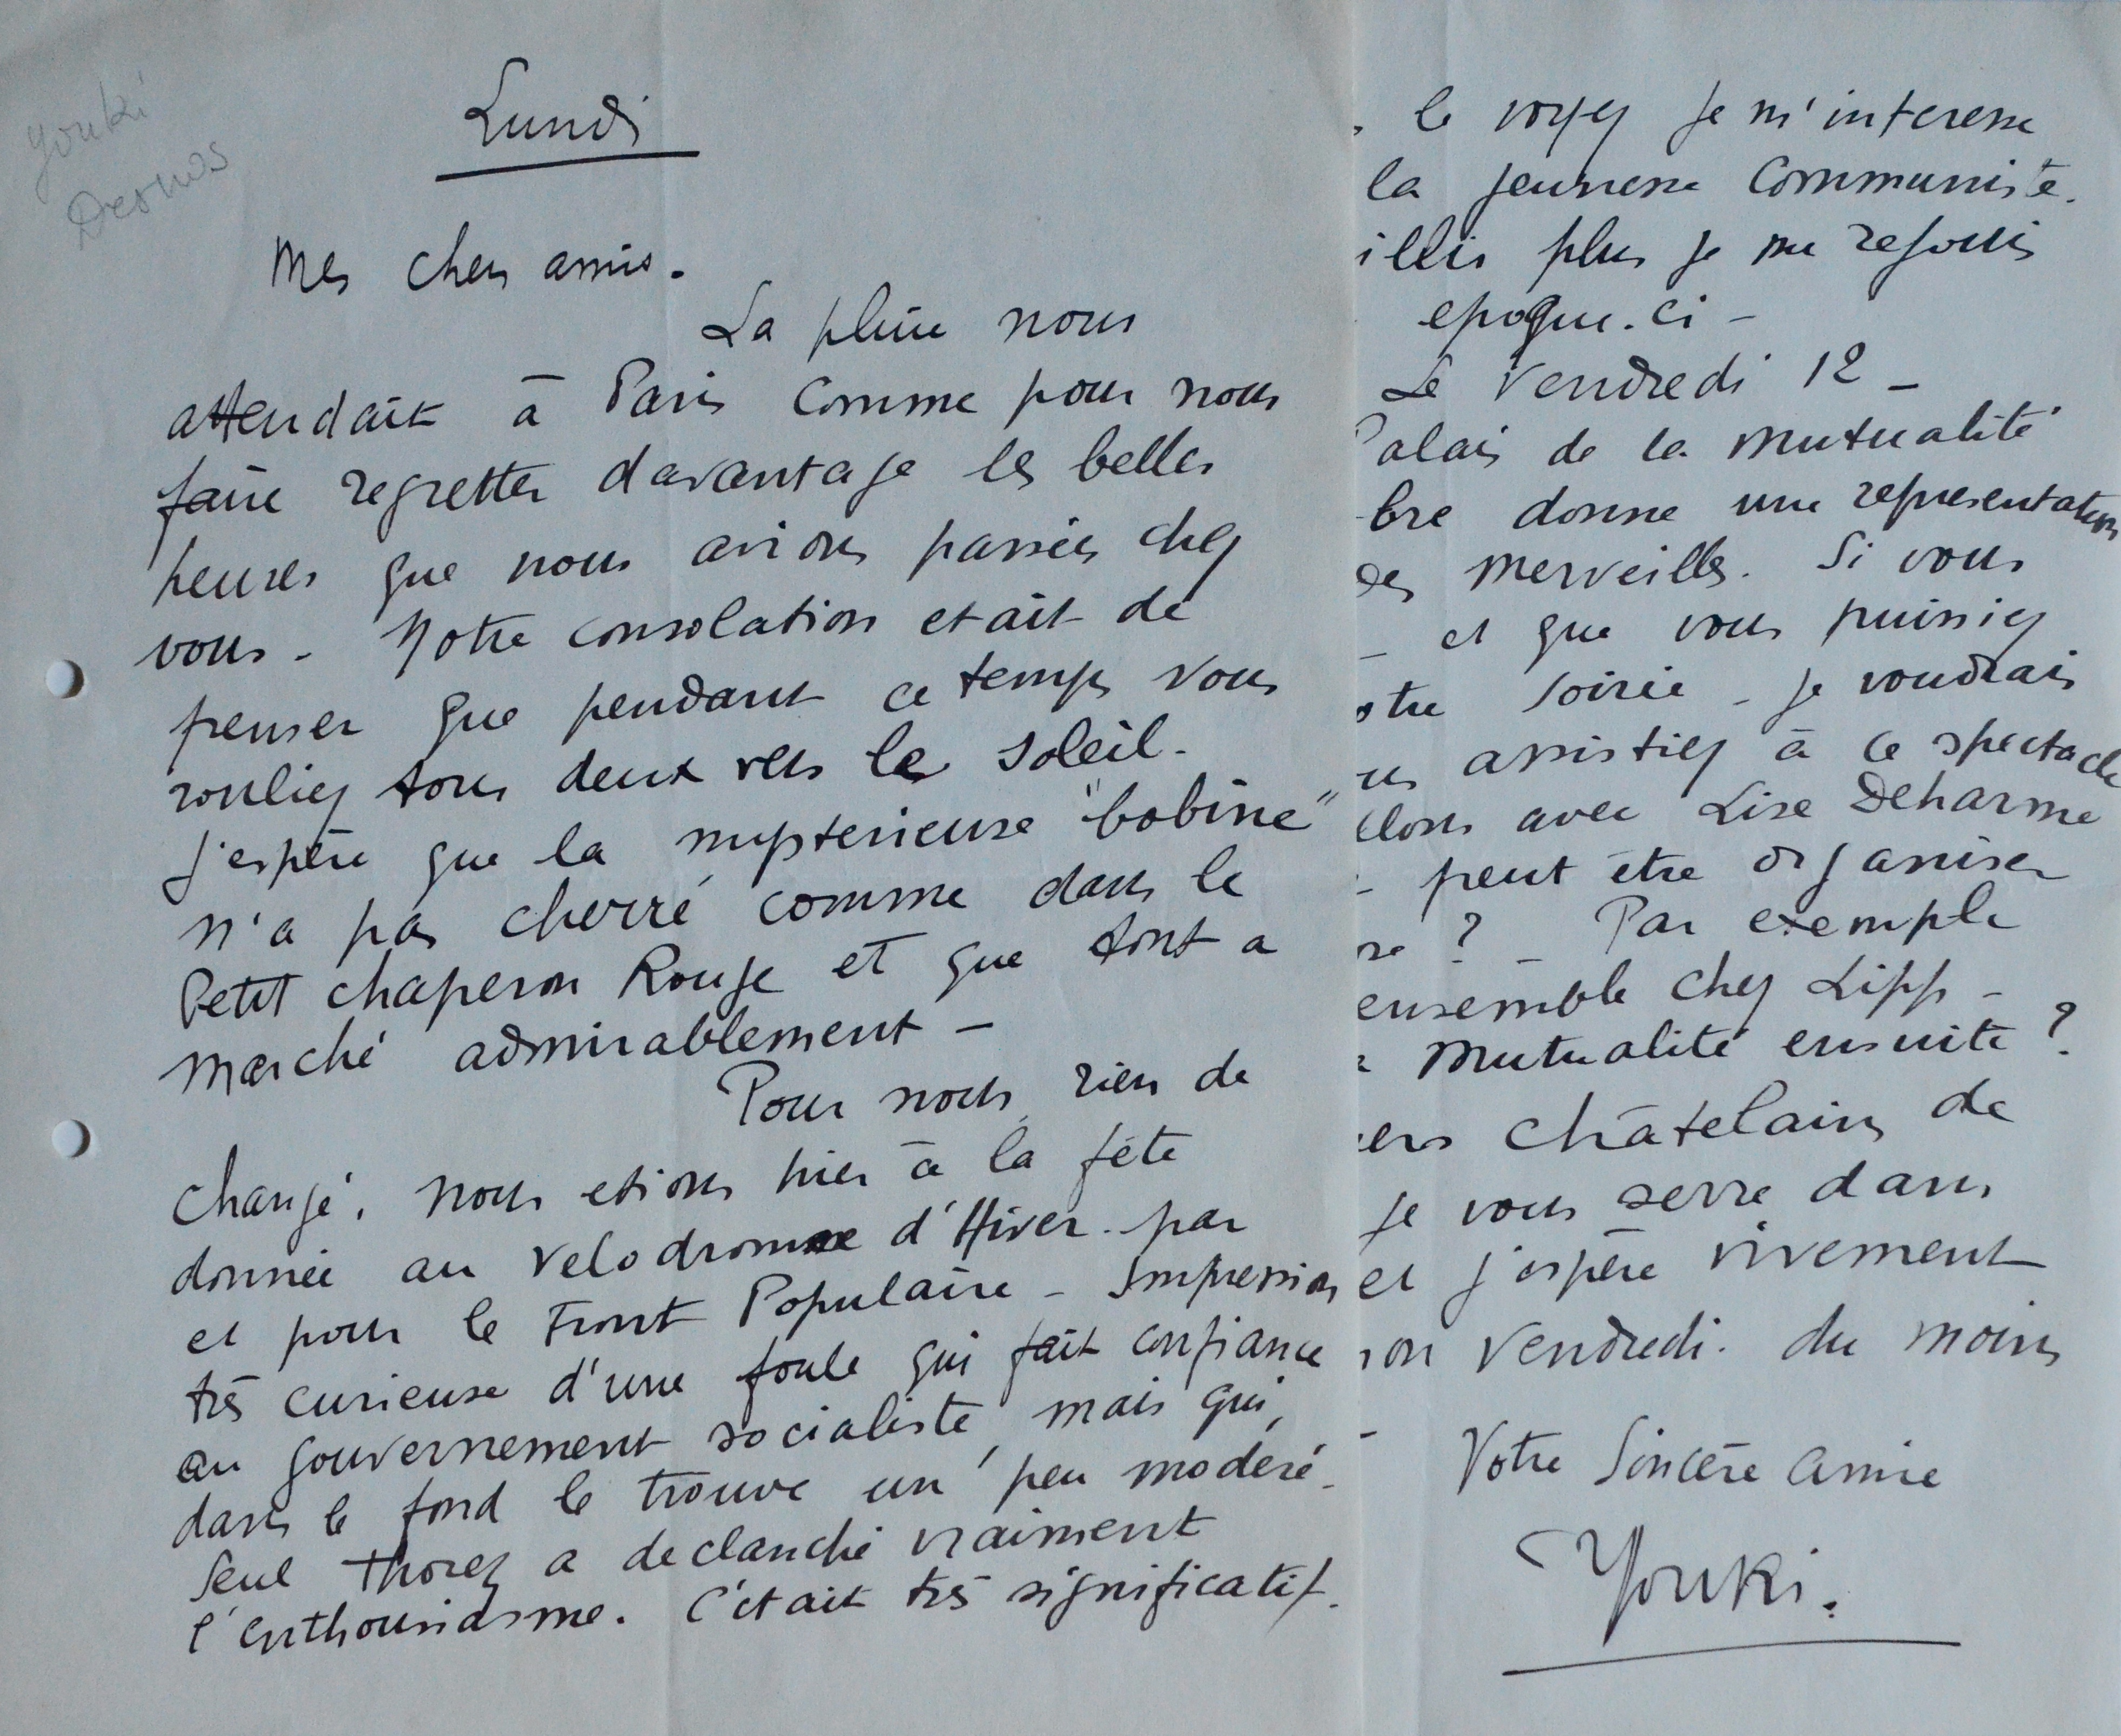 Youki
Desnos
Lundi
Mes chers amis.
La pluie nous
attendait à Paris comme pour nous
faire regretter davantage les belles
heures que nous avions passées chez
vous - Notre consolation etait de
penser que pendant ce temps vous
rouliez tous deux vers le soleil.
J'espère que la mysterieuse "bobine"
n'a pas cherré comme dans le
Petit chaperon Rouge et que tout a
marché admirablement -
Pour nous, rien de
changé. Nous etions hier à la fête
donnée au Velodrome d'Hiver par
et pour le Front Populaire - Impression
très curieuse d'une foule qui fait confiance
au gouvernement socialiste, mais qui,
dans le fond le trouve un peu modéré.
Seul Thorez a declanché vraiment
l'enthousiasme. C'était très significatif.
le voyez je m'interesse
la jeunesse Communiste.
illis plus je me rejouis
epoque.ci -
Le Vendredi 12 -
Palais de la Mutualité
bre donne une representation
des Merveilles. Si vous
- et que vous puissiez
otre soirée - je voudrais
us assistiez à ce spectacle
llons avec Lise Deharme
- peut être organiser
se ? - Par exemple
ensemble chez Lipp -
Mutualité ensuite ?
ers châtelains de
je vous serre dans
et j'espère vivement
on Vendredi. du moins
-
Votre Sincère amie
Youki.